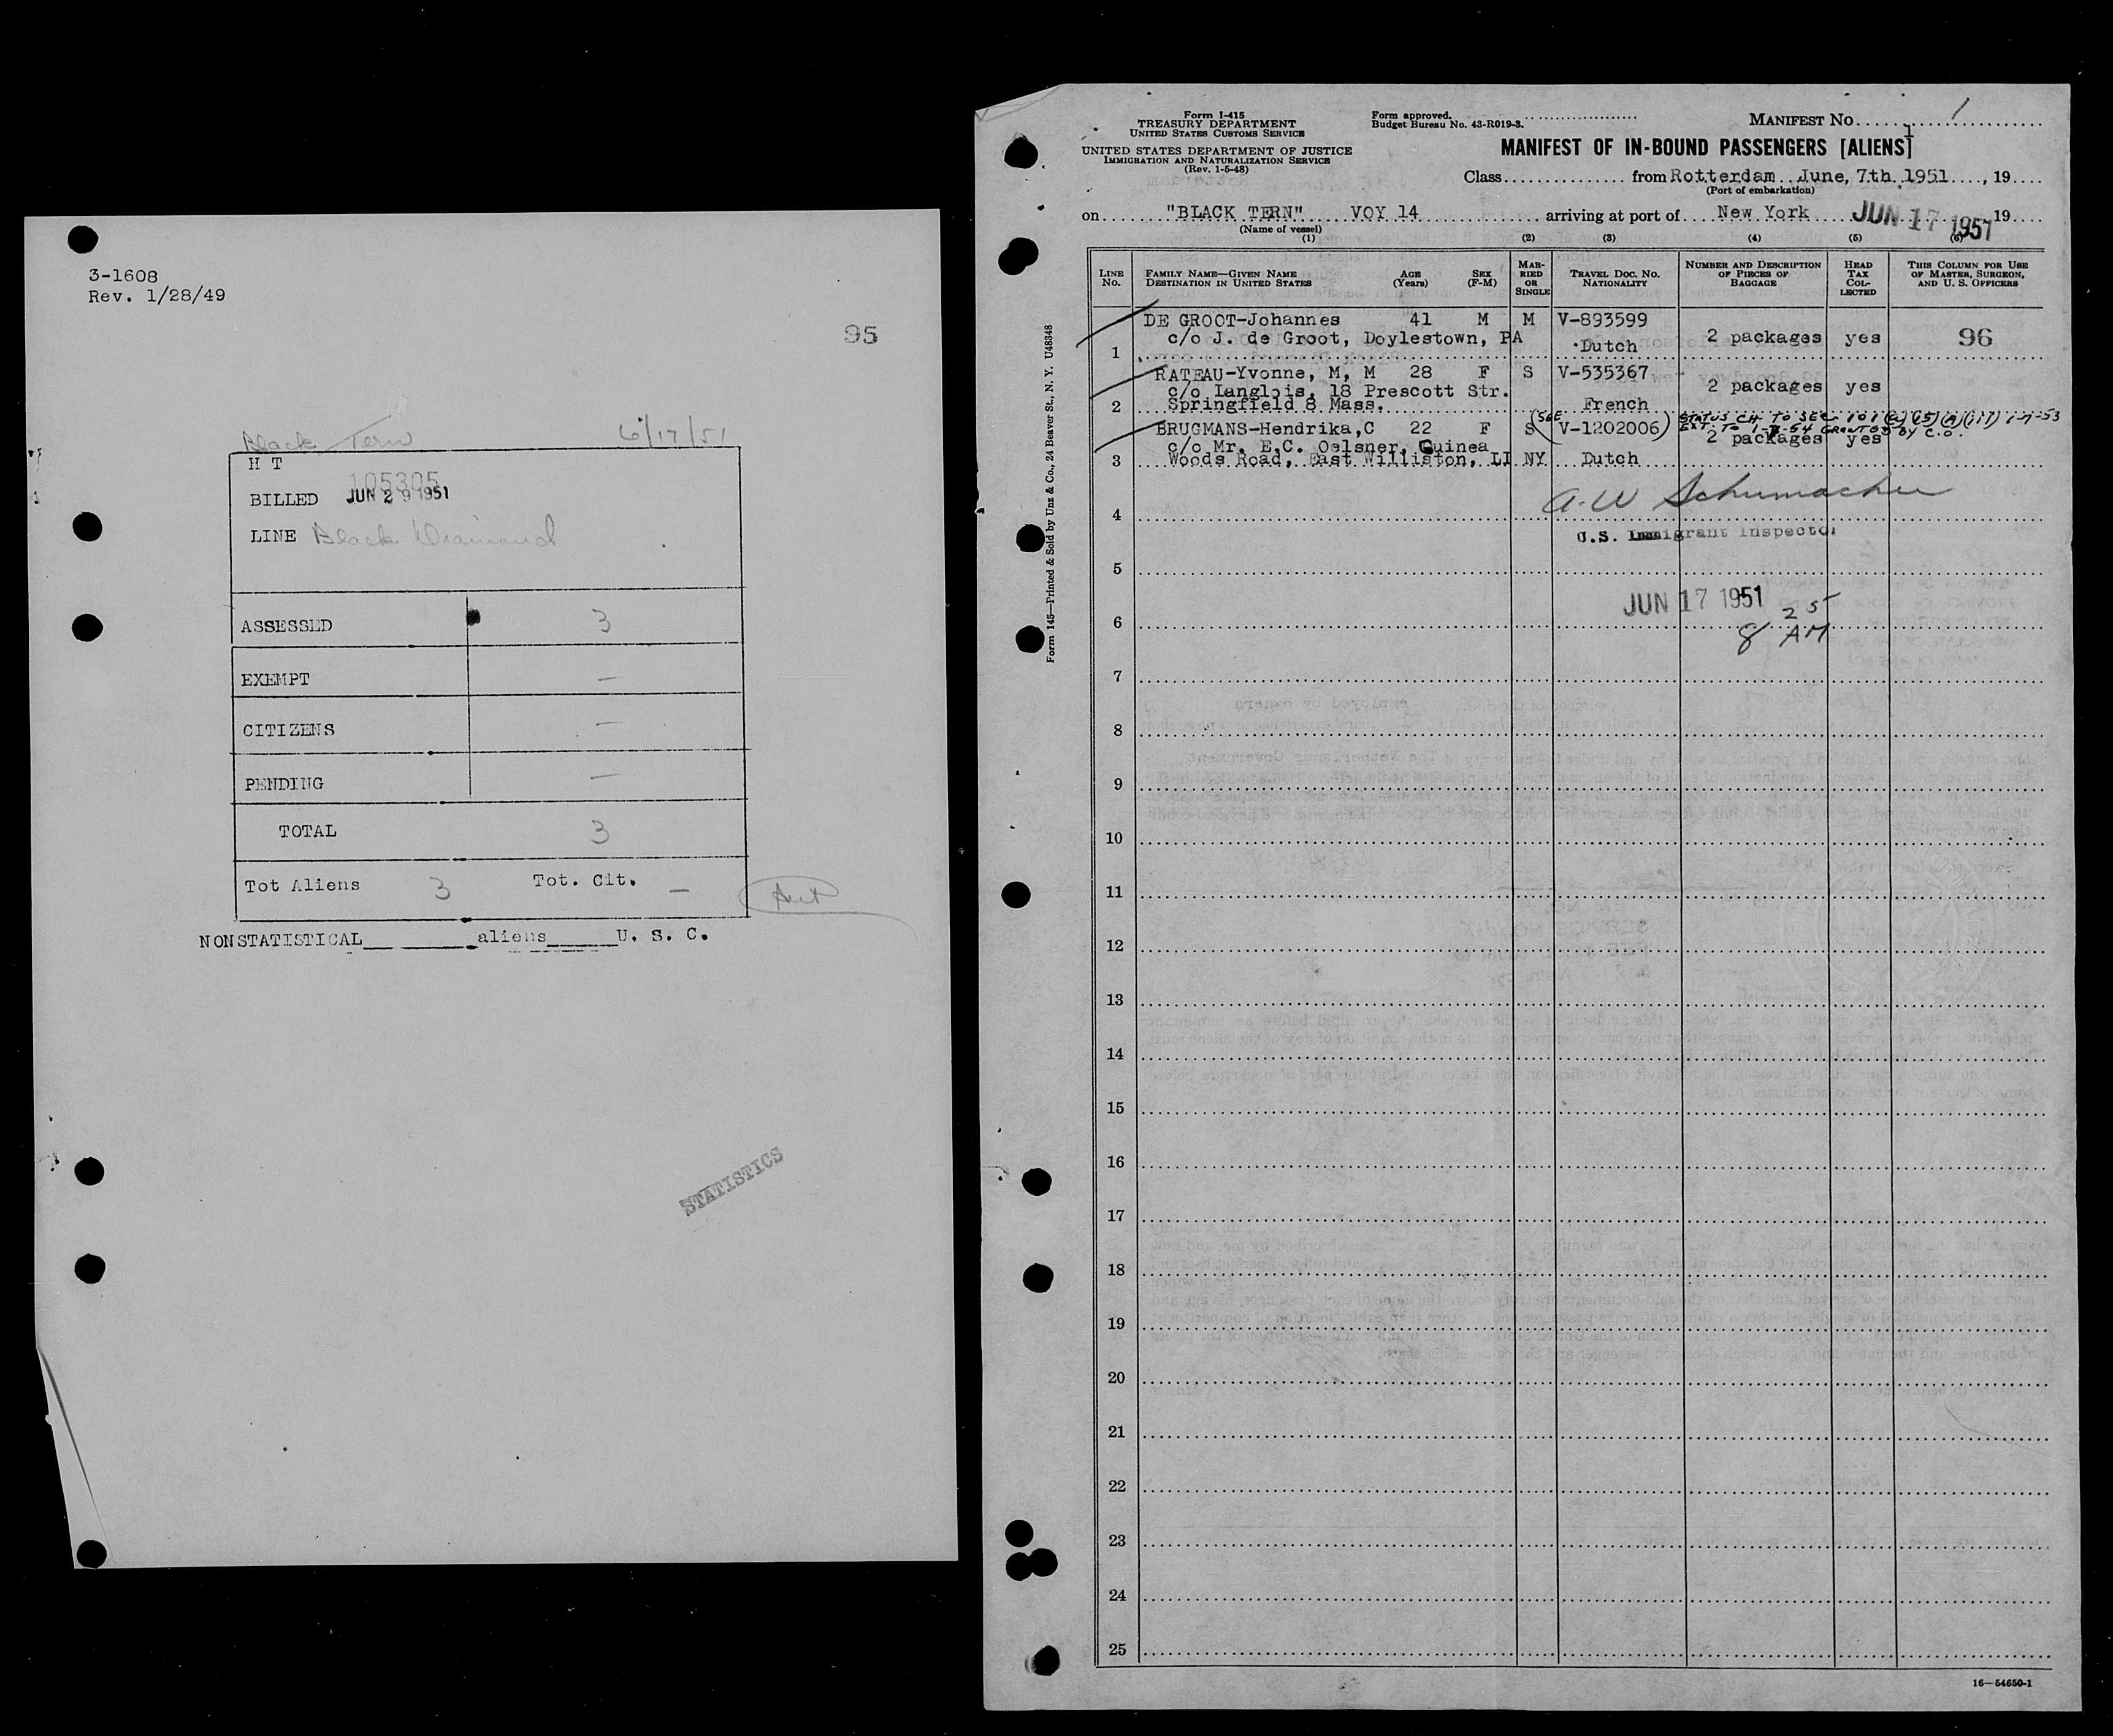 3-1608
Rev. 1/28/49
95
Black Tern 6/17/51
H T
105305
BILLED JUN 29 1951
LINE Black Diamond
ASSESSED 3
EXEMPT —
CITIZENS —
PENDING —
TOTAL 3
Tot Aliens 3 Tot. Cit. —
NONSTATISTICAL aliens U. S. C.
STATISTICS
Form I-415
TREASURY DEPARTMENT
UNITED STATES CUSTOMS SERVICE
UNITED STATES DEPARTMENT OF JUSTICE
IMMIGRATION AND NATURALIZATION SERVICE
(Rev. 1-5-48)
Form approved.
Budget Bureau No. 43-R019-3.
MANIFEST NO. 1
MANIFEST OF IN-BOUND PASSENGERS [ALIENS]
1
Class from Rotterdam June, 7th. 1951, 19
(Port of embarkation)
on "BLACK TERN" VOY 14 arriving at port of New York JUN 17 1951 19
(Name of vessel)
(1) (2) (3) (4) (5) (6)
LINE NO. FAMILY NAME—GIVEN NAME DESTINATION IN UNITED STATES AGE (Years) SEX (F-M) MARRIED OR SINGLE TRAVEL DOC. NO. NATIONALITY NUMBER AND DESCRIPTION OF PIECES OF BAGGAGE HEAD TAX COLLECTED THIS COLUMN FOR USE OF MASTER, SURGEON, AND U. S. OFFICERS
DE GROOT-Johannes 41 M M V-893599
c/o J. de Groot, Doylestown, PA 2 packages yes 96
1 Dutch
RATEAU-Yvonne, M, M 28 F S V-535367
c/o Langlois, 18 Prescott Str. 2 packages yes
2 Springfield 8 Mass. French
(SEE STATUS CH. TO SEC. 101(a)(15)(A)(iii) 1-7-53
EXT. TO 1-7-54 GRANTED BY C.O.
BRUGMANS-Hendrika,C 22 F S V-1202006) 2 packages yes
c/o Mr. E.C. Oelsner, Guinea
3 Woods Road, East Williston, LI NY Dutch
A.W Schumacher
4
U.S. Immigrant Inspector
5
JUN 17 1951
8 25 AM
6
7
8
9
10
11
12
13
14
15
16
17
18
19
20
21
22
23
24
25
Form 145—Printed & Sold by Unz & Co., 24 Beaver St., N. Y. U48348
16—54650-1